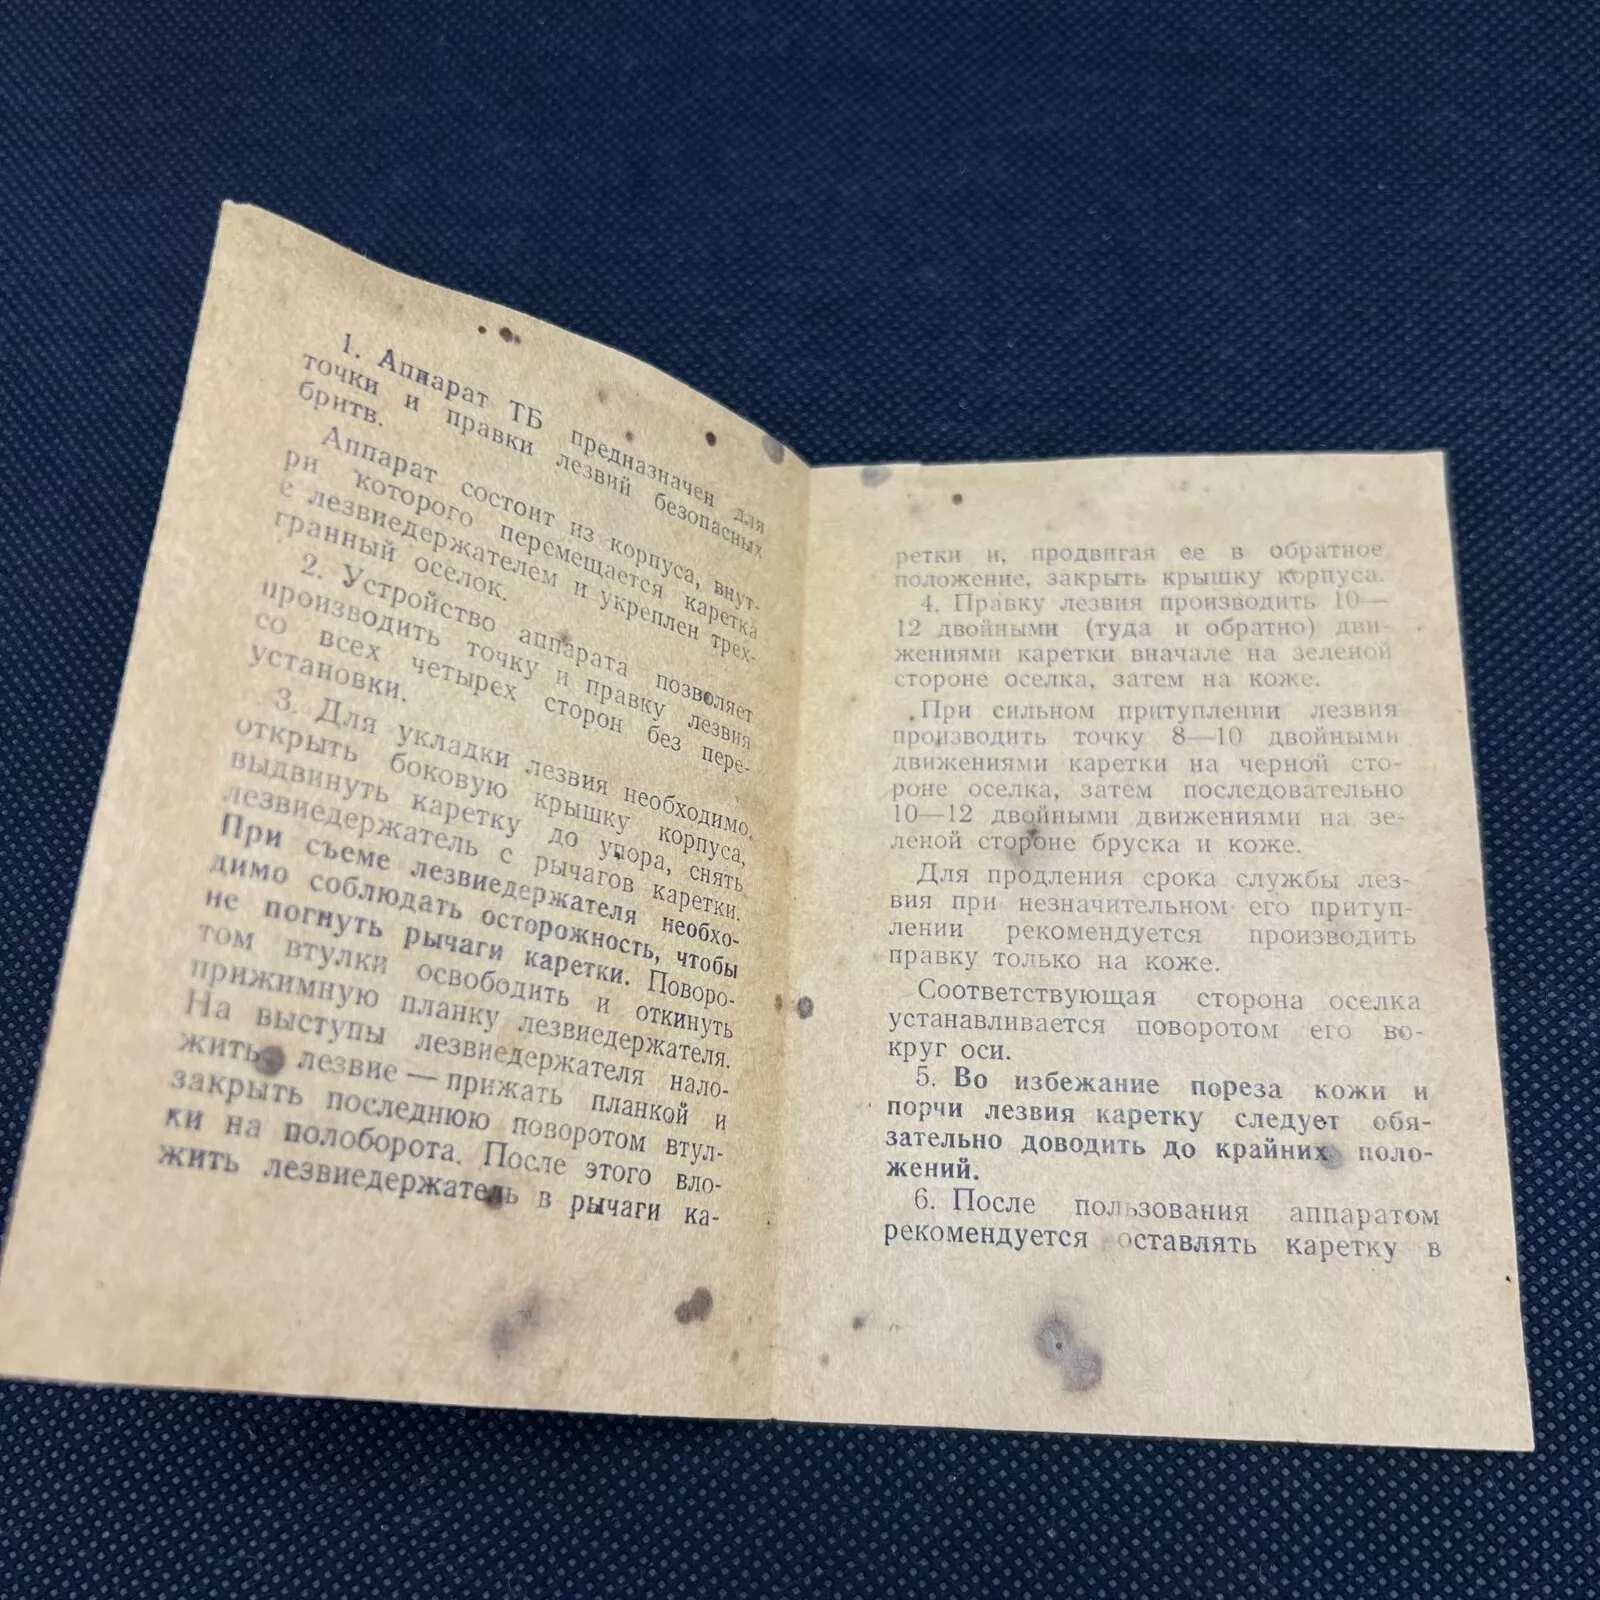 1. Аппарат ТБ предназначен для
точки и правки лезвий безопасных
бритв.
Аппарат состоит из корпуса, внут-
ри которого перемещается каретка
с лезвиедержателем и укреплен трех-
гранный оселок.
2. Устройство аппарата позволяет
производить точку и правку лезвия
со всех четырех сторон без пере-
установки.
3. Для укладки лезвия необходимо,
открыть боковую крышку корпуса,
выдвинуть каретку до упора, снять
лезвиедержатель с рычагов каретки.
При съеме лезвиедержателя необхо-
димо соблюдать осторожность, чтобы
не погнуть рычаги каретки. Поворо-
том втулки освободить и откинуть
прижимную планку лезвиедержателя.
На выступы лезвиедержателя нало-
жить лезвие — прижать планкой и
закрыть последнюю поворотом втул-
ки на полоборота. После этого вло-
жить лезвиедержатель в рычаги ка-
ретки и, продвигая ее в обратное
положение, закрыть крышку корпуса.
4. Правку лезвия производить 10—
12 двойными (туда и обратно) дви-
жениями каретки вначале на зеленой
стороне оселка, затем на коже.
При сильном притуплении лезвия
производить точку 8—10 двойными
движениями каретки на черной сто-
роне оселка, затем последовательно
10—12 двойными движениями на зе-
леной стороне бруска и коже.
Для продления срока службы лез-
вия при незначительном его притуп-
лении рекомендуется производить
правку только на коже.
Соответствующая сторона оселка
устанавливается поворотом его во-
круг оси.
5. Во избежание пореза кожи и
порчи лезвия каретку следует обя-
зательно доводить до крайних поло-
жений.
6. После пользования аппаратом
рекомендуется оставлять каретку в